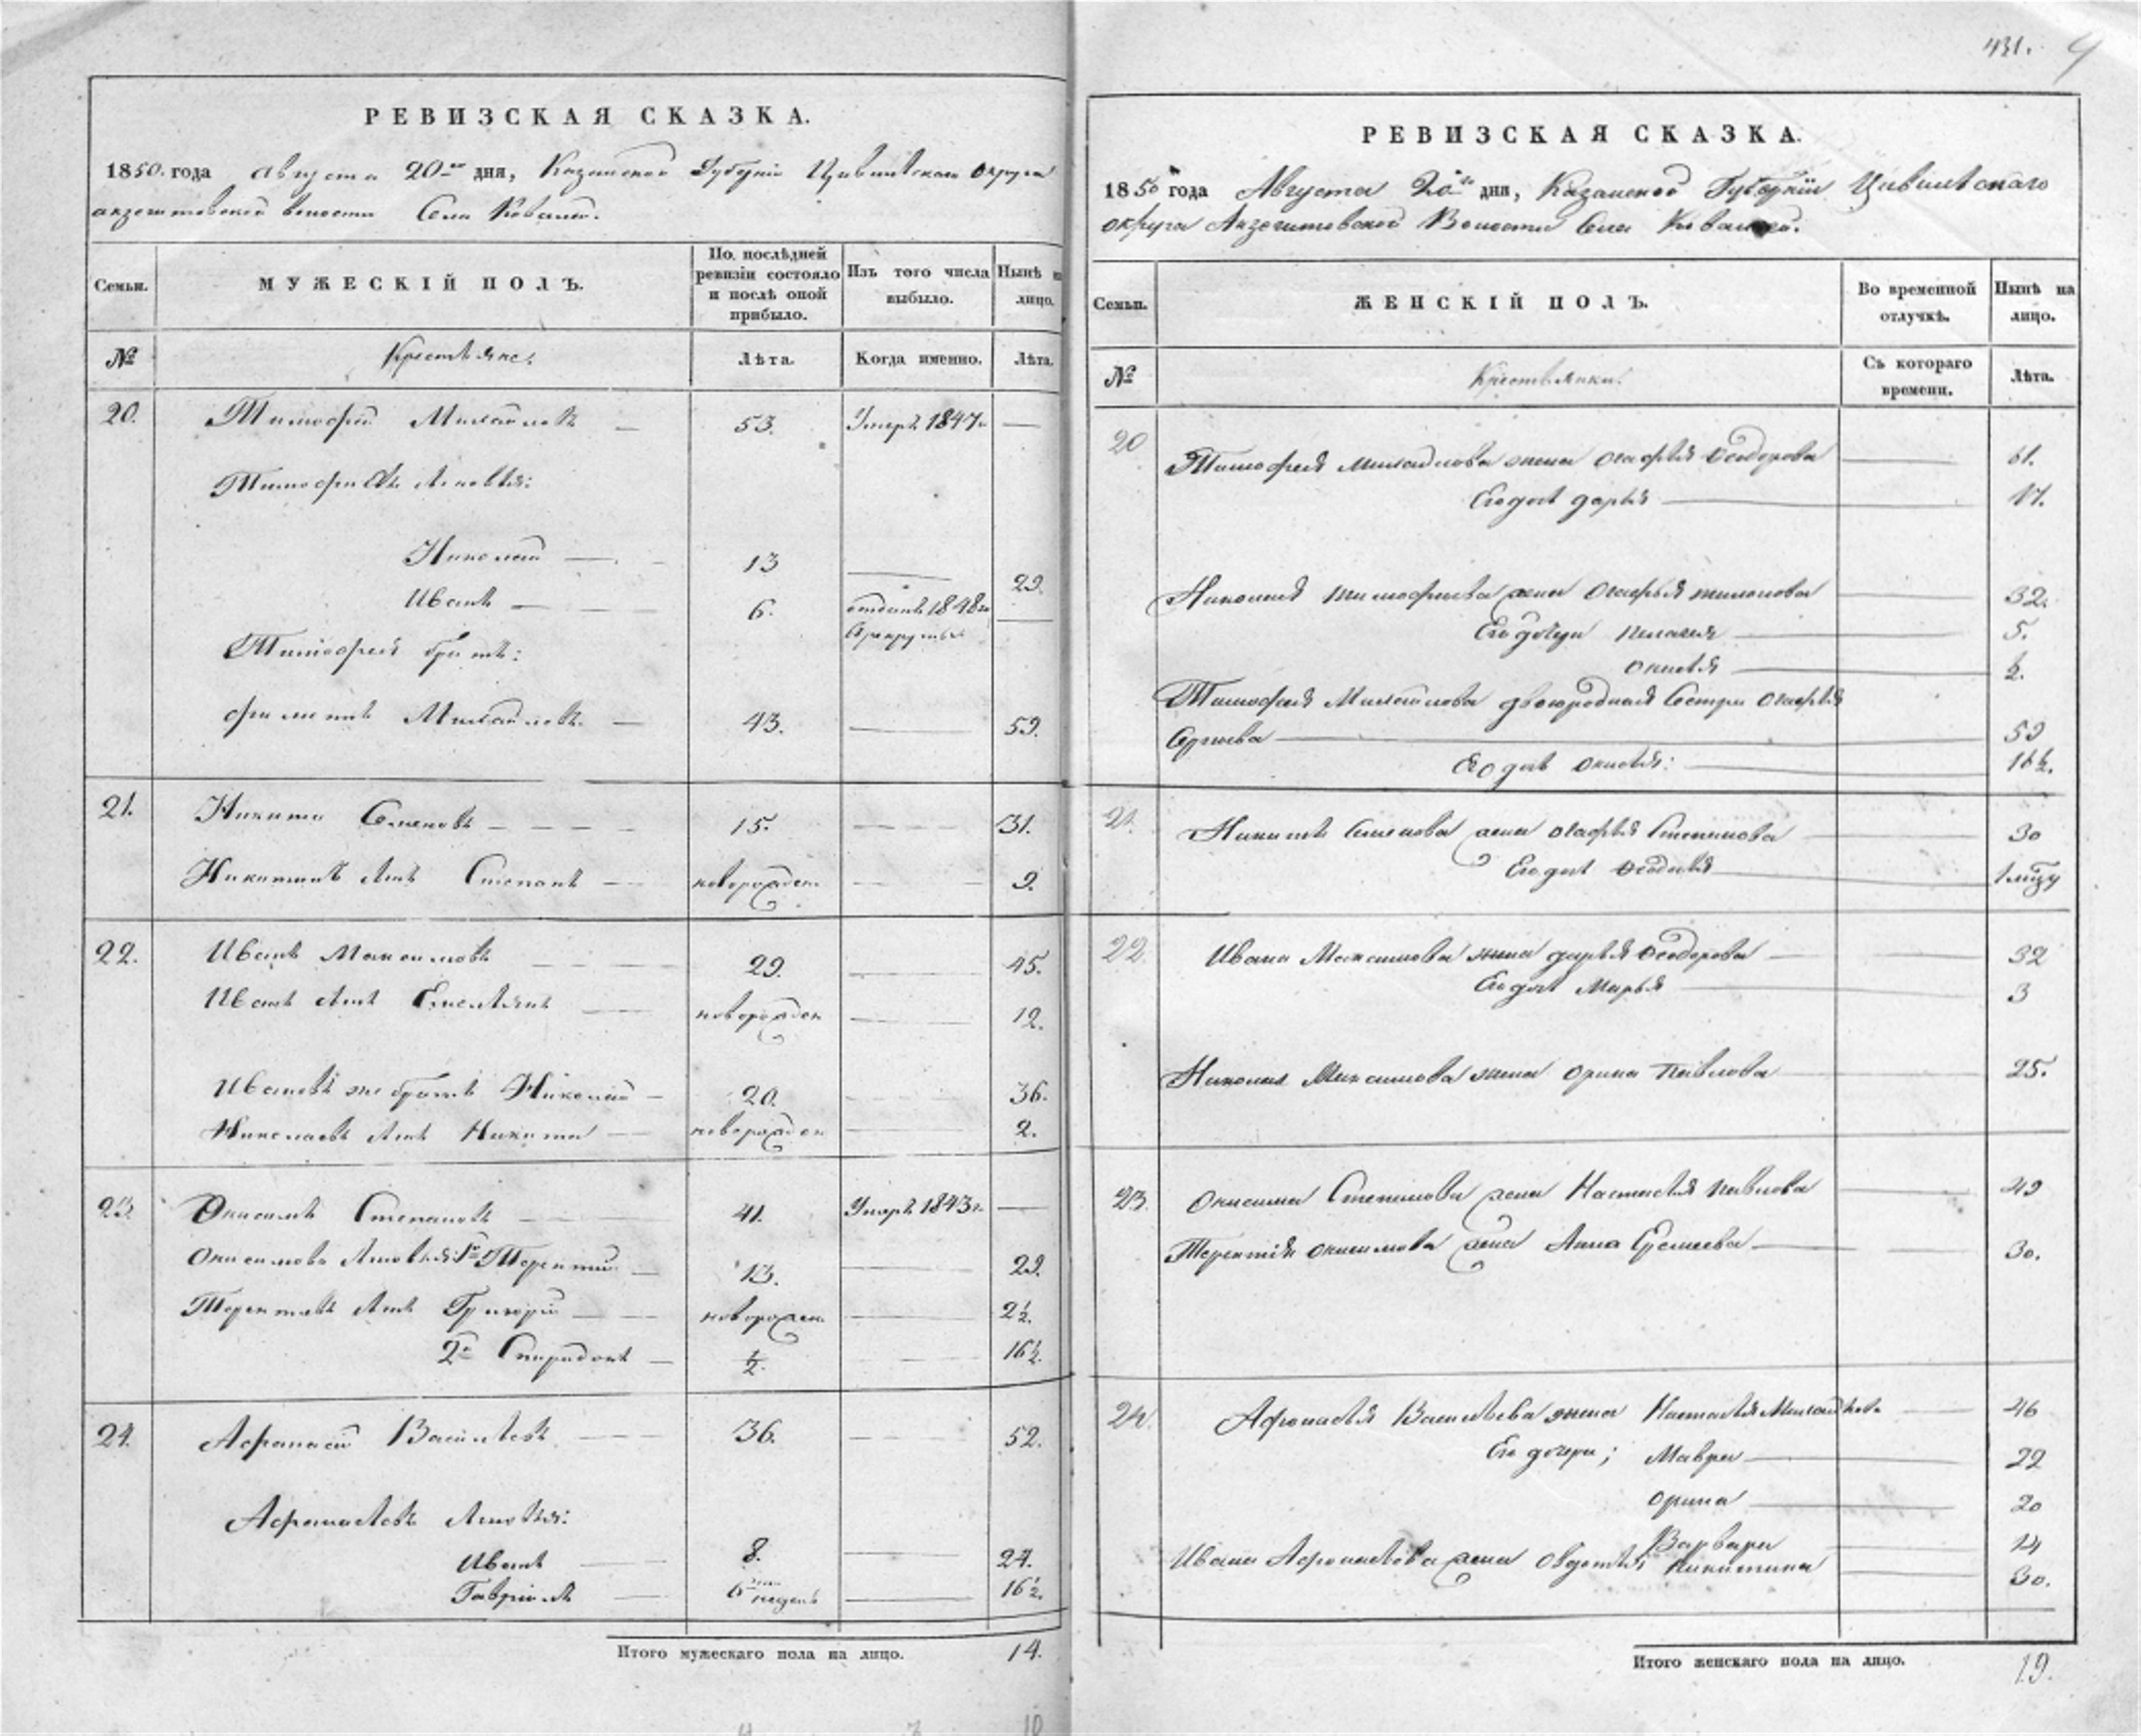 РЕВИЗСКАЯ СКАЗКА.
1850. года августа 20го дня, Казанской Губернiи Цивильскаго округа
акзегитовской волости Села Ковалей.
Семьи.
МУЖЕСКIЙ ПОЛЪ.
По послѣдней ревизiи состояло и послѣ оной прибыло.
Изъ того числа выбыло.
Нынѣ на лицо.
№
Крестьяне.
Лѣта.
Когда именно.
Лѣта.
20. Тимофей Михайловъ — 53. Умеръ 1847г —
Тимофеевы сыновья:
Николай — 13 — 29.
Иванъ — 6. отданъ 1848го —
Тимофея братъ:
филипъ Михайловъ — 43. — 59.
21. Никита Семеновъ — 15. — 31.
Никитинъ сынъ Степанъ — новорожден — 9.
22. Иванъ Максимовъ — 29. — 45.
Иванъ сынъ Емельянъ — новорожден — 12.
Ивановъ же братъ Николай — 20. — 36.
Николаевъ сынъ Никита — новорожден — 2.
23. Онисимъ Степановъ — 41. Умеръ 1843г. —
Онисимовы сыновья: 1й Терентiй — 13. — 29.
Терентьевъ сынъ Григорiй — новорожден — 2½.
2й Спиридонъ — ½ — 16½.
24. Афанасiй Васильевъ — 36. — 52.
Афанасьевы сыновья:
Иванъ — 8. — 24.
Гаврiилъ — 6ти недель — 16½.
Итого мужескаго пола на лицо. 14.
431.
РЕВИЗСКАЯ СКАЗКА.
1850 года Августа 20го дня, Казанской Губернiи Цивильскаго
округа Акзегитовской Волости Села Ковалей.
Семьи.
ЖЕНСКIЙ ПОЛЪ.
Во временной отлучкѣ.
Нынѣ на лицо.
№
Крестьянки.
Съ котораго времени.
Лѣта.
20 Тимофея Михайлова жена Огафья Феодорова — 61.
Его дочь дарья — 17.
Николая тимофеева жена Огафья — 32.
Его дочери пелагея — 5.
Онисья — ½.
Тимофея Михайлова двоюродная Сестра Огафья
Сергиева — 59
Ея дочь Онисья: — 16½.
21. Никиты Семенова жена огафья Степанова — 30
Его дочь Феодосья — 1
22 Ивана Максимова жена дарья Феодорова — 32
Его дочь Марья — 3
Николая Максимова жена Орина Павлова — 25.
23. Онисима Степанова жена Настасья павлова — 49
Терентiя онисимова жена Анна — 30.
24. Афонасья Васильева жена Настасья Михайлова — 46
Его дочери; Мавра — 22
Орина — 20
Варвара — 14
Ивана Афонасьева жена Овдотья Никитина — 30.
Итого женскаго пола на лицо. 19.